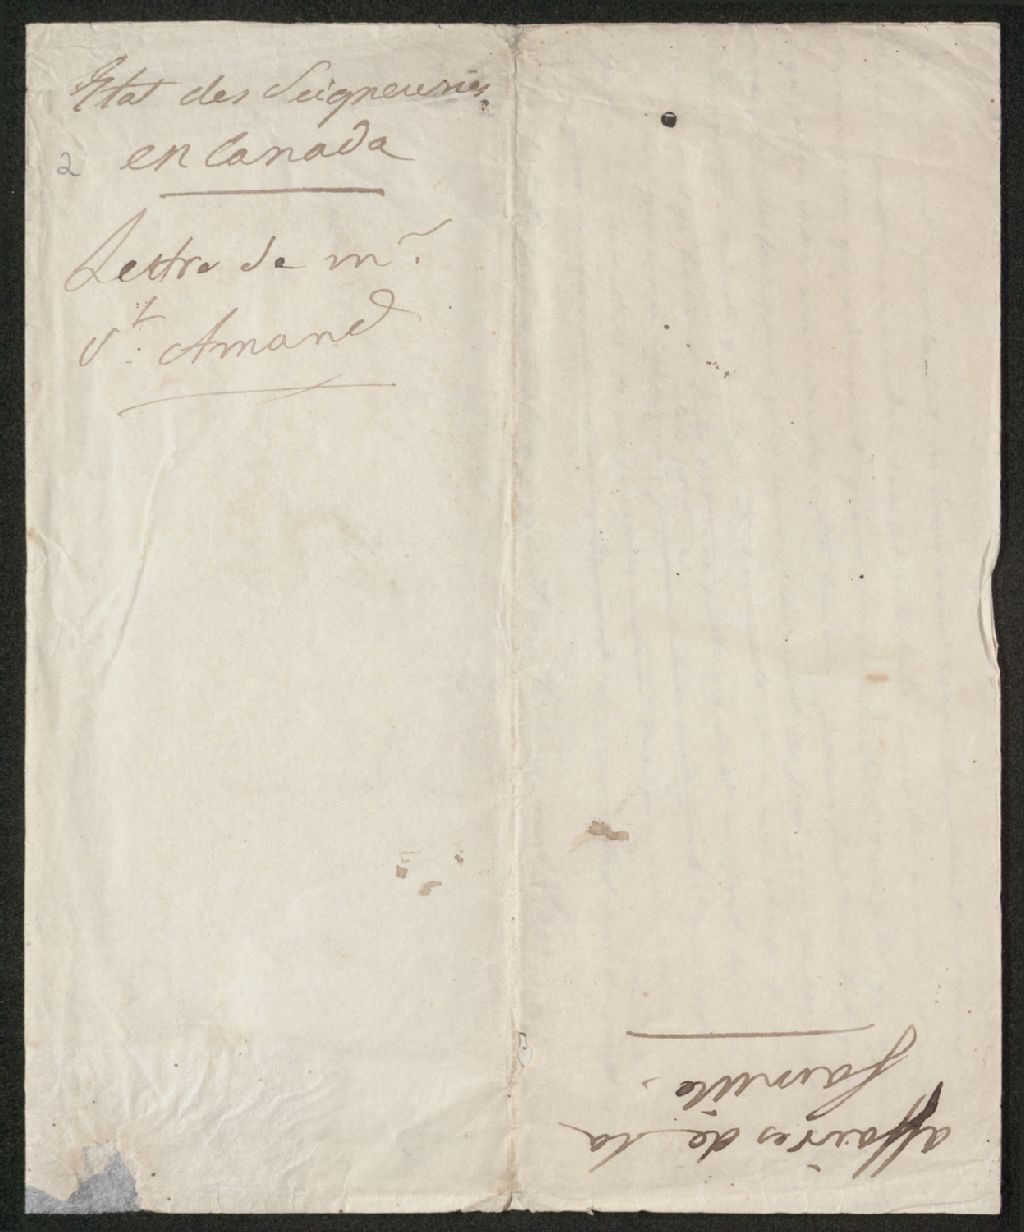 Etat des Seigneuries
2 en Canada
Lettre de mr.
St. Amand
affaires de la
famille.